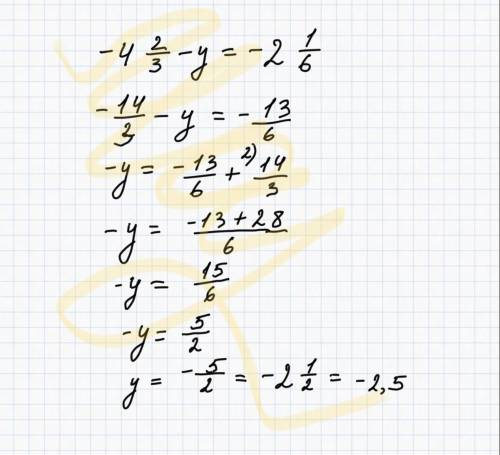 -4 2/3 - y = -2 1/6
-14/3 - y = -13/6
-y = -13/6 + 2) 14/3
-y = -13+28/6
-y = 15/6
-y = 5/2
y = -5/2 = -2 1/2 = -2,5